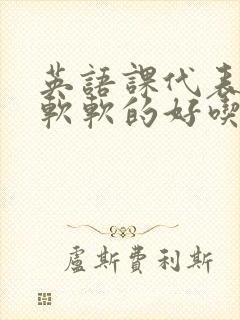 英語課代表
軟軟的好喫
盧斯費利斯